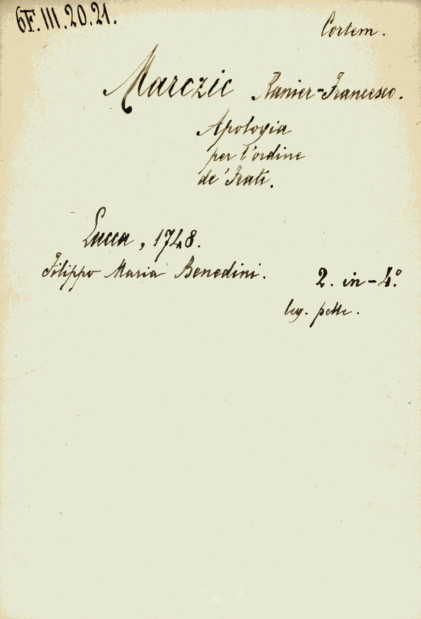 6F.III.20.21.
Cortem.
Marczic Ranier-Francesco.
Apologia
per l'ordine
de' Frati.
Lucca, 1748.
Filippo Maria Benedini.
2. in-4.º
leg. pelle.